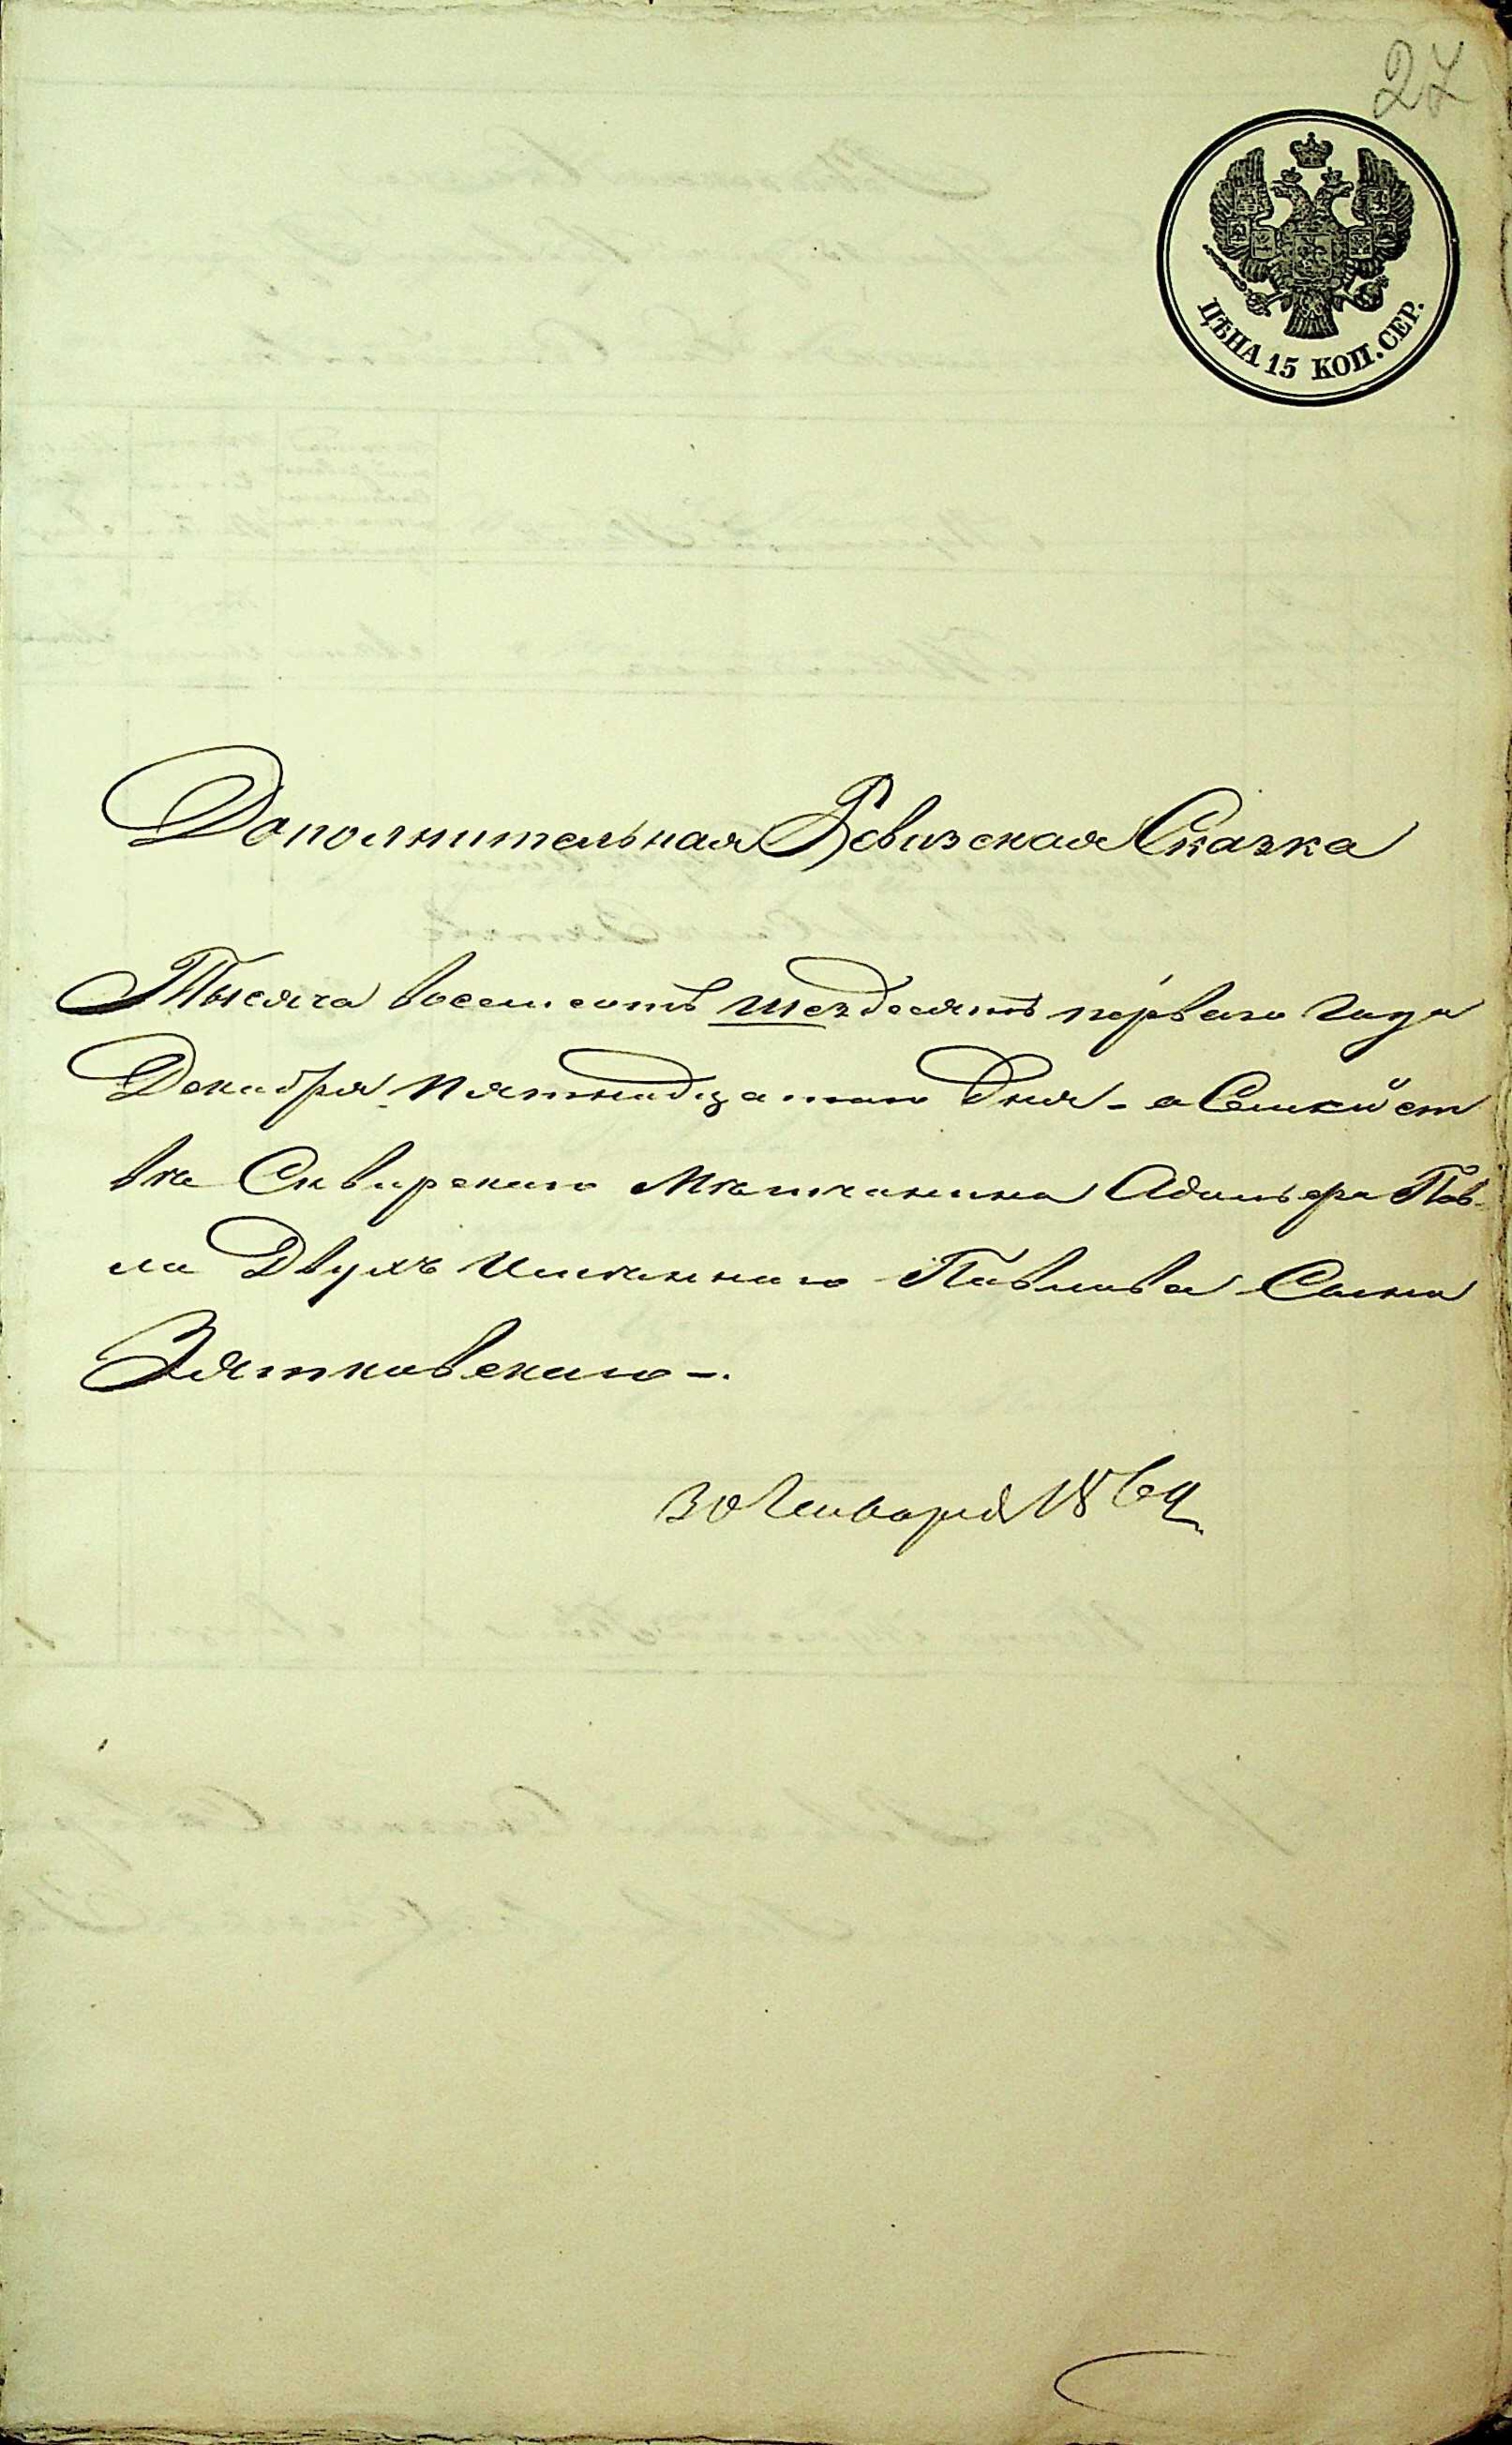 27
ЦѢНА 15 КОП. СЕР.
Дополнительная Ревизская Сказка
Тысяча восемсотъ шездесятъ первого года
Декабря Пятнадцатого Дня - о Семѣйст
вѣ Сквирского Мѣщанина Адольфа Пав-
ла Двухъ Имяннаго Павлова Сына
Зятковского -.
30 Января 1864